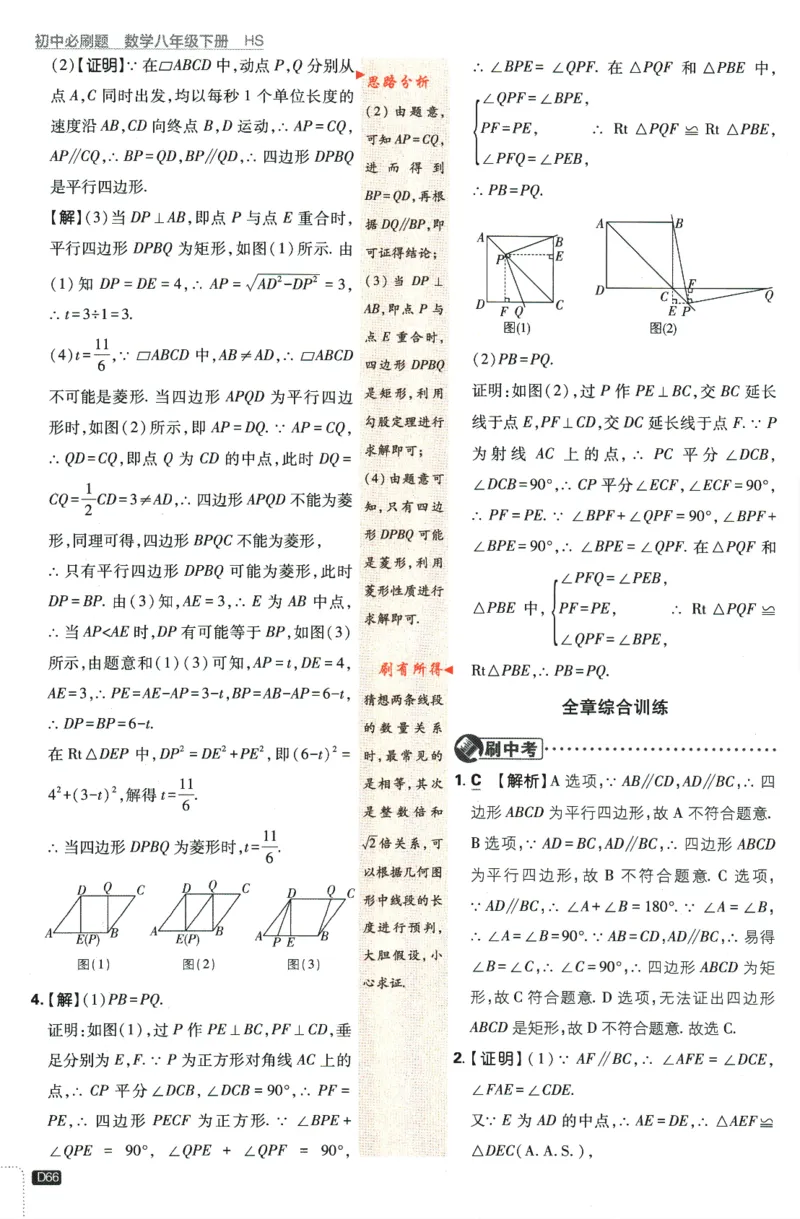 初中必刷题 数学八年级下册 HS
(2)【证明】∵ 在▱ABCD 中,动点 P,Q 分别从
点 A,C 同时出发,均以每秒 1 个单位长度的
速度沿 AB,CD 向终点 B,D 运动,∴ AP=CQ,
AP∥CQ,∴ BP=QD,BP∥QD,∴ 四边形 DPBQ
是平行四边形.
【解】(3)当 DP⊥AB,即点 P 与点 E 重合时,
平行四边形 DPBQ 为矩形,如图(1)所示. 由
(1) 知 DP = DE = 4,∴ AP = √(AD²-DP²) = 3,
∴ t=3÷1=3.
(4)t=11/6,∵ ▱ABCD 中,AB≠AD,∴ ▱ABCD
不可能是菱形. 当四边形 APQD 为平行四边
形时,如图(2)所示,即 AP=DQ. ∵ AP=CQ,
∴ QD=CQ,即点 Q 为 CD 的中点,此时 DQ=
CQ=1/2CD=3≠AD,∴ 四边形 APQD 不能为菱
形,同理可得,四边形 BPQC 不能为菱形,
∴ 只有平行四边形 DPBQ 可能为菱形,此时
DP=BP. 由(3)知,AE=3,∴ E 为 AB 中点,
∴ 当AP<AE 时,DP 有可能等于 BP,如图(3)
所示,由题意和(1)(3)可知,AP=t,DE=4,
AE=3,∴ PE=AE-AP=3-t,BP=AB-AP=6-t,
∴ DP=BP=6-t.
在 Rt△DEP 中,DP²=DE²+PE²,即(6-t)²=
4²+(3-t)²,解得 t=11/6.
∴ 当四边形 DPBQ 为菱形时,t=11/6.
D Q C
A E(P) B
图(1)
D Q C
A E(P) B
图(2)
D Q C
A P E B
图(3)
4.【解】(1)PB=PQ.
证明:如图(1),过 P 作 PE⊥BC,PF⊥CD,垂
足分别为 E,F. ∵ P 为正方形对角线 AC 上的
点,∴ CP 平分∠DCB,∠DCB=90°,∴ PF=
PE,∴ 四边形 PECF 为正方形. ∵ ∠BPE+
∠QPE = 90°, ∠QPE + ∠QPF = 90°,
D66
思路分析
(2) 由题意,
可知AP=CQ,
进而得到
BP=QD,再根
据DQ∥BP,即
可证得结论;
(3) 当 DP⊥
AB,即点 P 与
点 E 重合时,
四边形 DPBQ
是矩形,利用
勾股定理进行
求解即可;
(4)由题意可
知,只有四边
形 DPBQ 可能
是菱形,利用
菱形性质进行
求解即可.
刷有所得
猜想两条线段
的数量关系
时,最常见的
是相等,其次
是整数倍和
√2倍关系,可
以根据几何图
形中线段的长
度进行预判,
大胆假设,小
心求证.
∴ ∠BPE= ∠QPF. 在 △PQF 和 △PBE 中,
∠QPF=∠BPE,
PF=PE, ∴ Rt △PQF ≌ Rt △PBE,
∠PFQ=∠PEB,
∴ PB=PQ.
A B
P E
D F Q C
图(1)
A B
D C F Q
E P
图(2)
(2)PB=PQ.
证明:如图(2),过 P 作 PE⊥BC,交 BC 延长
线于点 E,PF⊥CD,交 DC 延长线于点 F. ∵ P
为射线 AC 上的点,∴ PC 平分 ∠DCB,
∠DCB=90°,∴ CP 平分∠ECF,∠ECF=90°,
∴ PF=PE. ∵ ∠BPF+∠QPF=90°,∠BPF+
∠BPE=90°,∴ ∠BPE=∠QPF. 在△PQF 和
∠PFQ=∠PEB,
△PBE 中, PF=PE, ∴ Rt △PQF ≌
∠QPF=∠BPE,
Rt△PBE,∴ PB=PQ.
全章综合训练
刷中考
1. C 【解析】A 选项,∵ AB∥CD,AD∥BC,∴ 四
边形 ABCD 为平行四边形,故 A 不符合题意.
B 选项,∵ AD=BC,AD∥BC,∴ 四边形 ABCD
为平行四边形,故 B 不符合题意. C 选项,
∵ AD∥BC,∴ ∠A+∠B=180°. ∵ ∠A=∠B,
∴ ∠A=∠B=90°. ∵ AB=CD,AD∥BC,∴ 易得
∠B=∠C,∴ ∠C=90°,∴ 四边形 ABCD 为矩
形,故 C 符合题意. D 选项,无法证出四边形
ABCD 是矩形,故 D 不符合题意. 故选 C.
2.【证明】(1)∵ AF∥BC,∴ ∠AFE = ∠DCE,
∠FAE=∠CDE.
又∵ E 为 AD 的中点,∴ AE=DE,∴ △AEF≌
△DEC(A.A.S.),